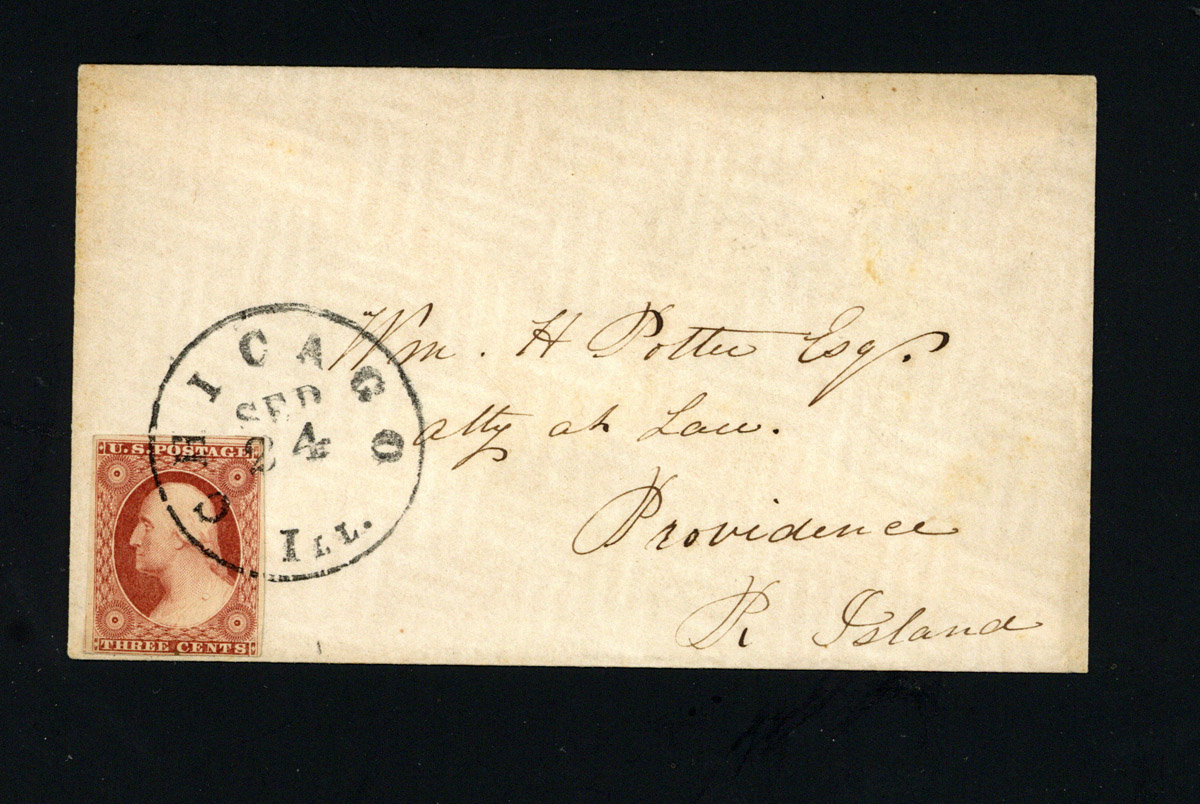 CHICAGO
SEP
24
ILL.
U.S. POSTAGE
THREE CENTS
Wm. H Potter Esq.
atty at Law.
Providence
R Island